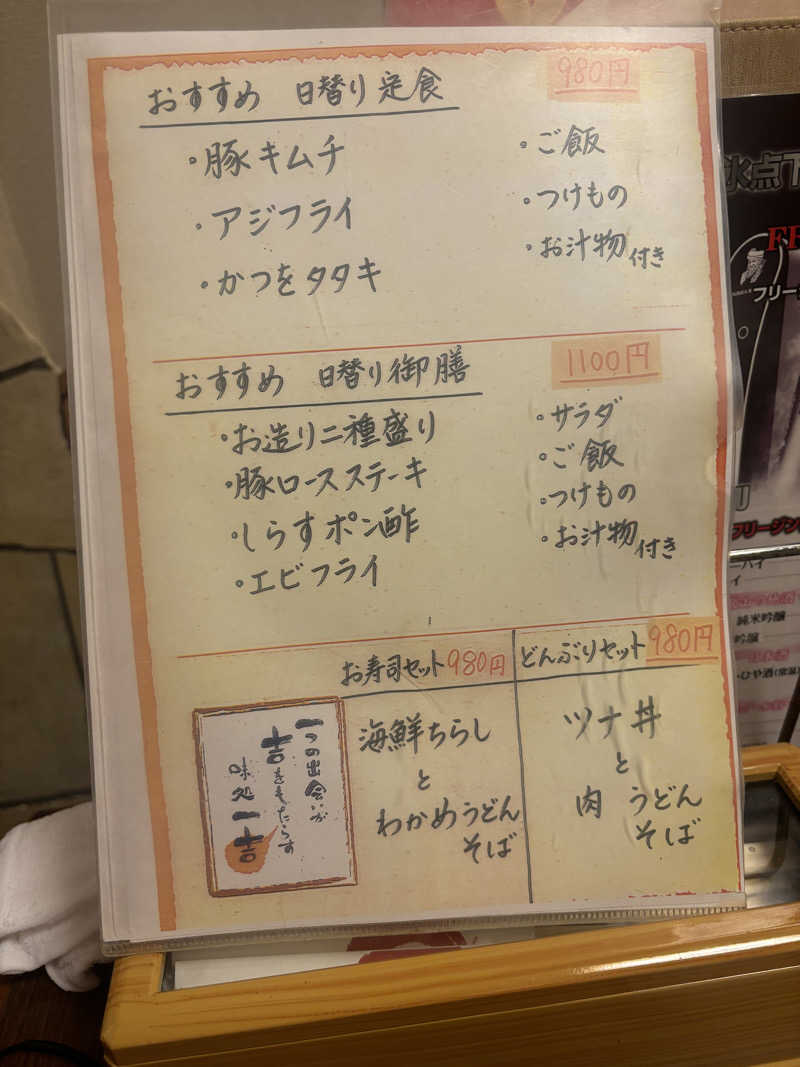 おすすめ 日替り定食 980円
・豚キムチ
・アジフライ
・かつをタタキ
・ご飯
・つけもの
・お汁物付き
おすすめ 日替り御膳 1100円
・お造り二種盛り
・豚ロースステーキ
・しらすポン酢
・エビフライ
・サラダ
・ご飯
・つけもの
・お汁物付き
お寿司セット980円
海鮮ちらし
と
わかめうどん
そば
どんぶりセット980円
ツナ丼
と
肉 うどん
そば
一つの出会いが
吉をもたらす
味処 一吉
氷点下
フリー
フリージン
純米吟醸
吟醸
・ひや酒(常温)